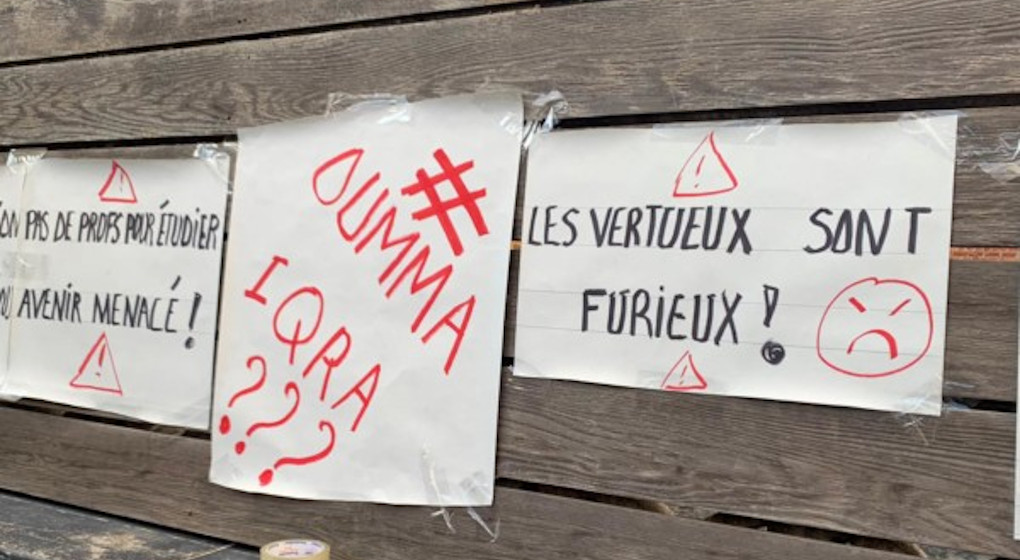 PAS DE PROFS POUR ÉTUDIER
AVENIR MENACÉ !
#
OUMMA
IQRA
???
LES VERTUEUX SONT
FURIEUX !